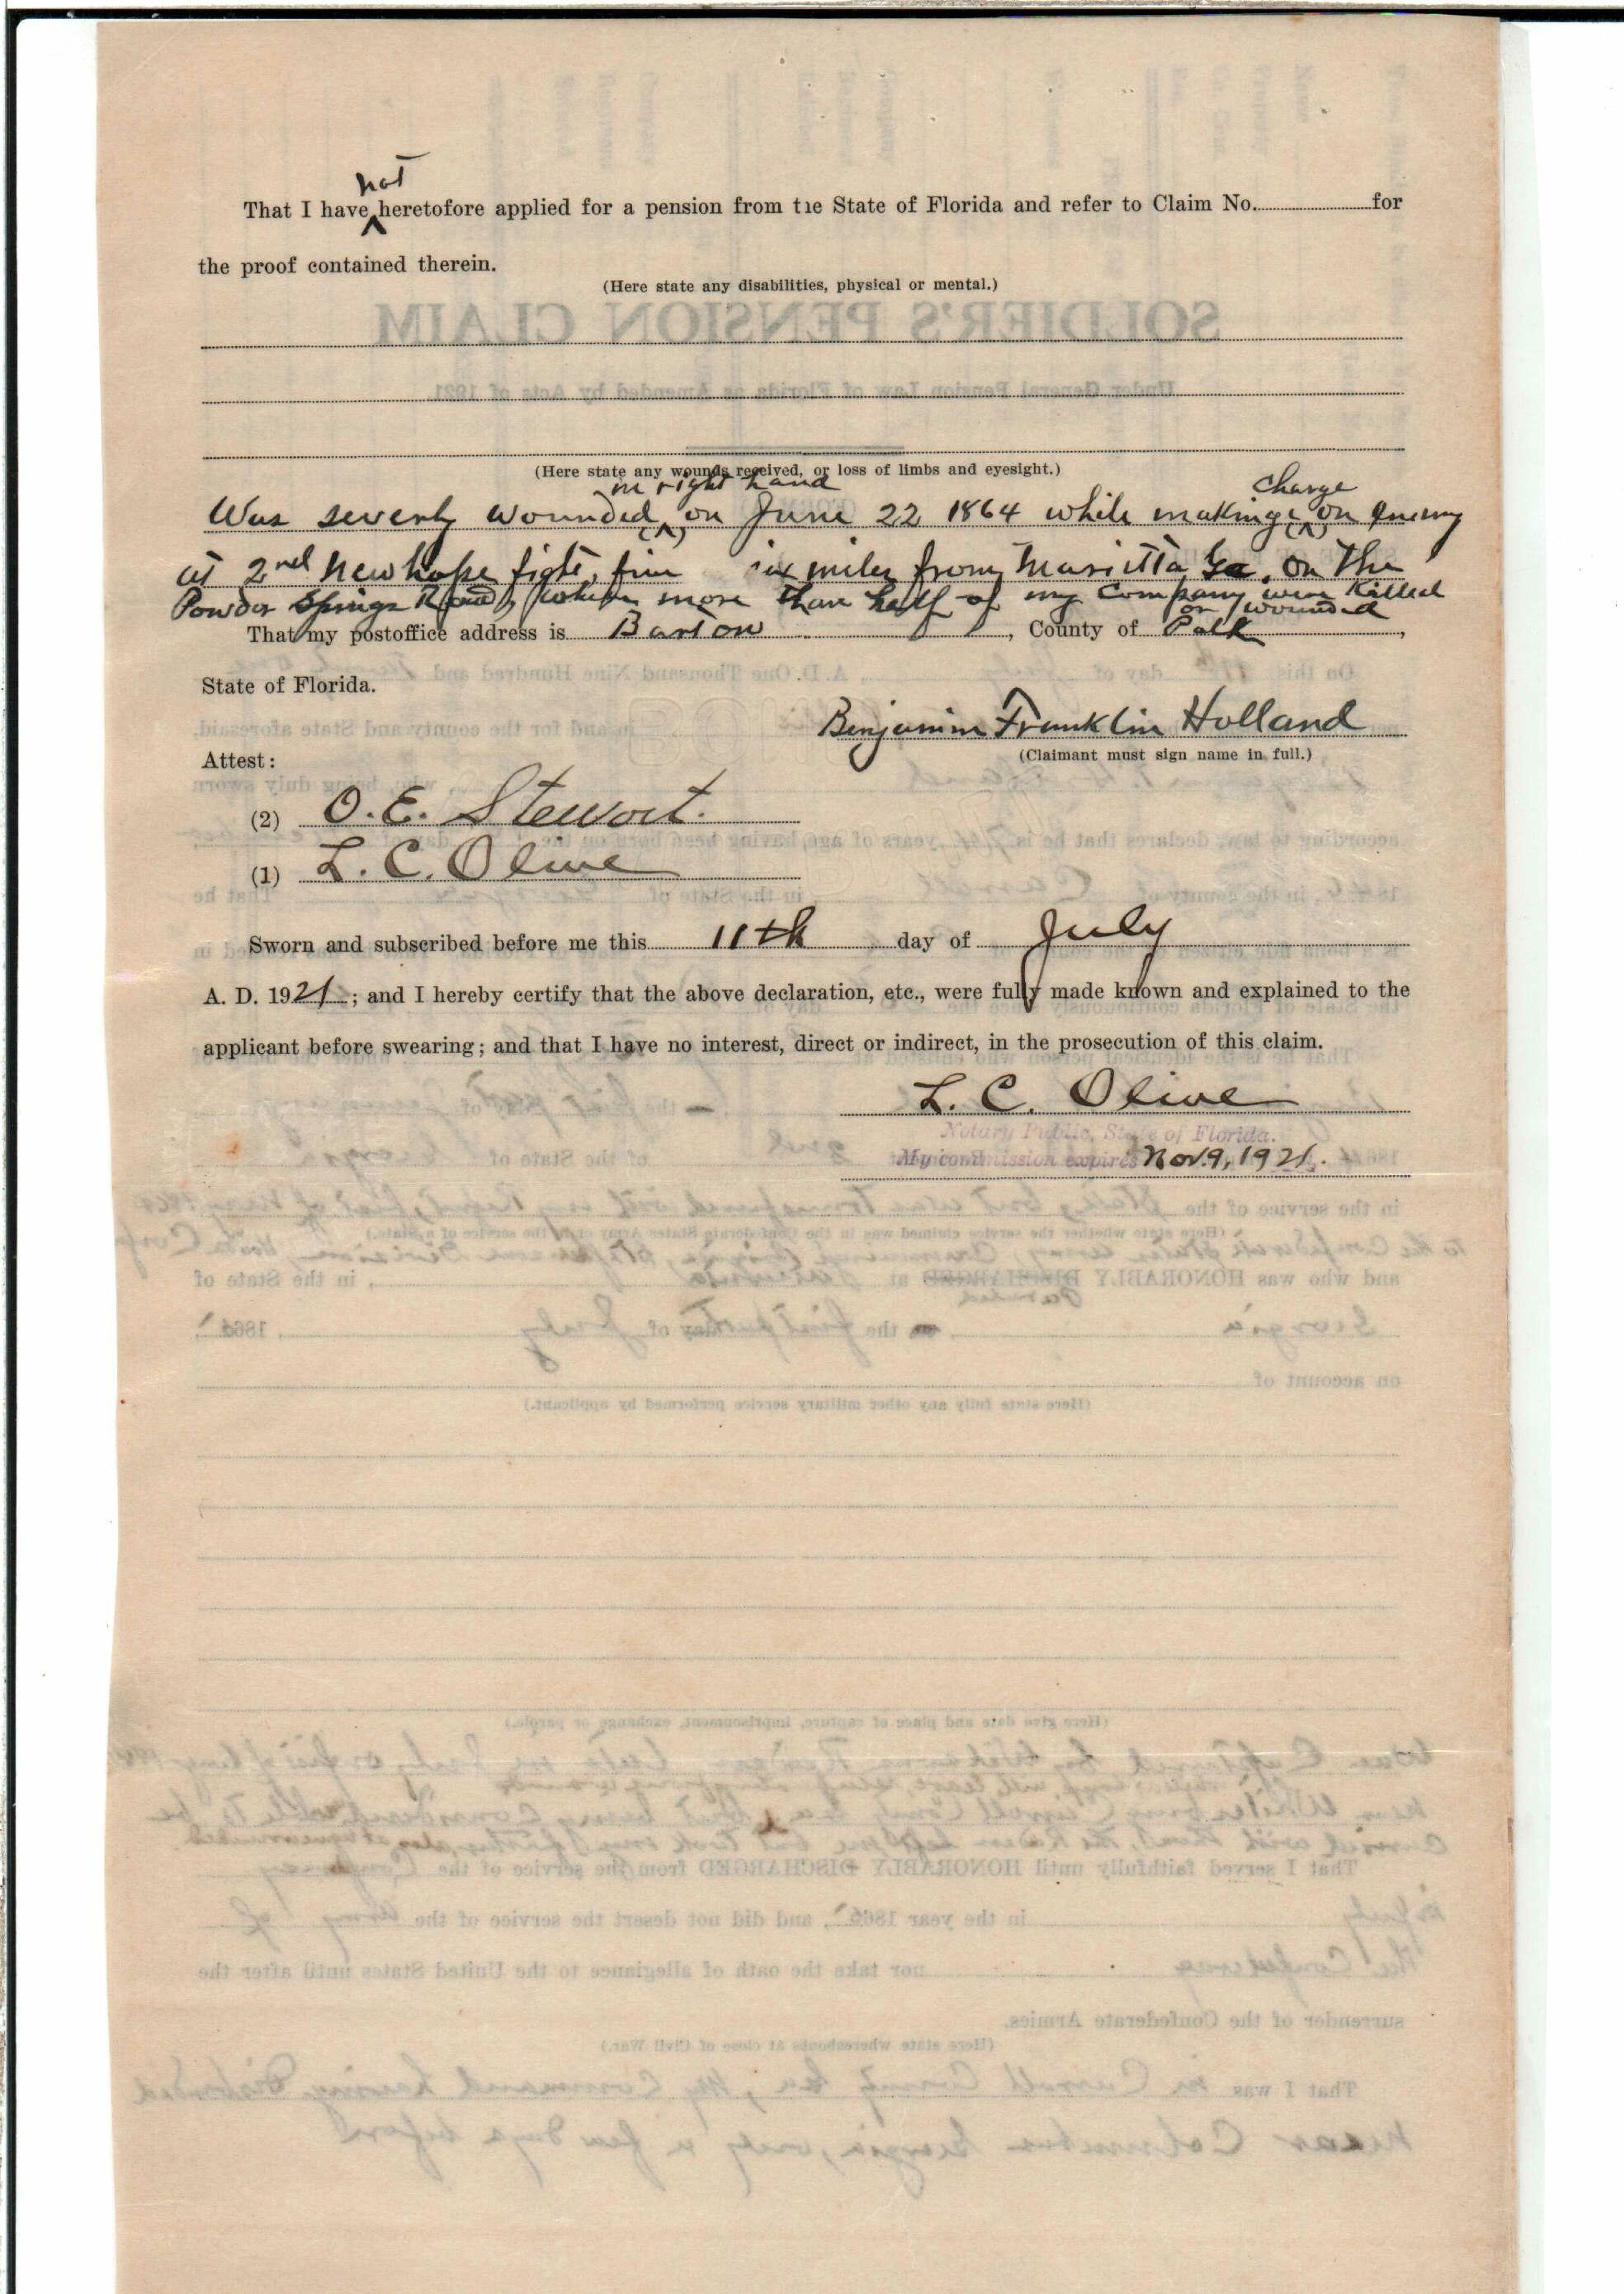 not
That I have heretofore applied for a pension from the State of Florida and refer to Claim No. for
the proof contained therein.
(Here state any disabilities, physical or mental.)
(Here state any wounds received, or loss of limbs and eyesight.)
in right hand charge
Was severly wounded on June 22 1864 while making on enemy
at 2nd New hope fight, five six miles from Marietta Ga, on the
Powder Springs Road, where more than half of my Company were Killed
or wounded
That my postoffice address is Bartow, County of Polk,
State of Florida.
Benjamin Franklin Holland
(Claimant must sign name in full.)
Attest:
(2) O. E. Stewart.
(1) L. C. Olive
Sworn and subscribed before me this 11th day of July
A. D. 1921; and I hereby certify that the above declaration, etc., were fully made known and explained to the
applicant before swearing; and that I have no interest, direct or indirect, in the prosecution of this claim.
L. C. Olive
Notary Public, State of Florida.
My commission expires Nov. 9, 1921.